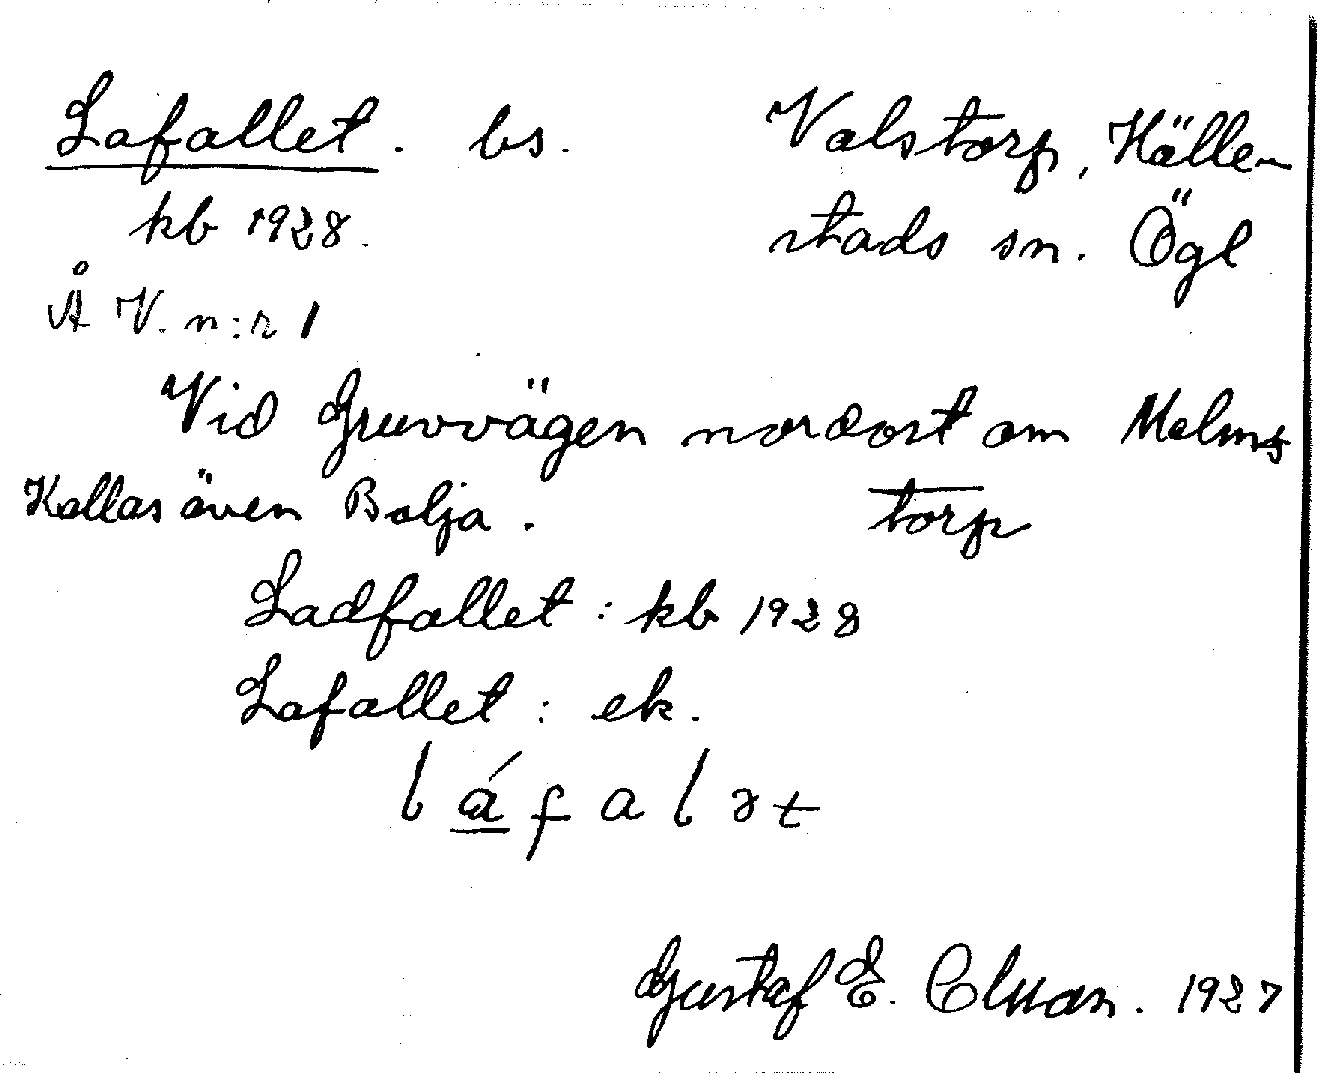 Lafallet. bs. Valstorp, Hälle-
kb 1928. stads sn. Ögl
Å V. n:r 1
Vid Gruvvägen nordost om Malms
Kallas även Balja. torp
Ladfallet : kb 1928
Lafallet : ek.
l á f a l ə t
Gustaf E. 1927